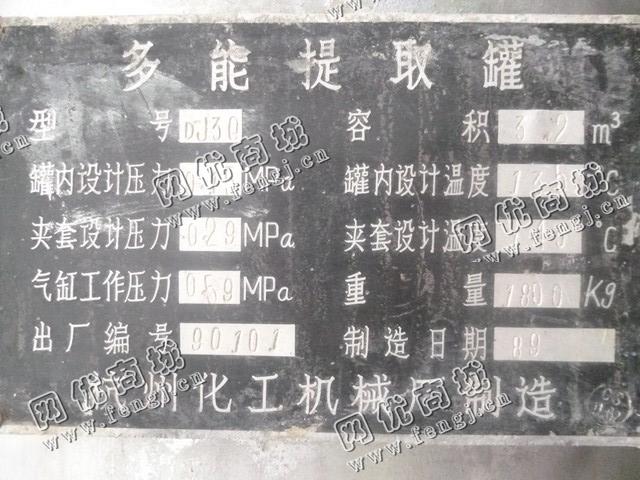 多能提取罐
型号 DJ30 容积 3.2 m³
罐内设计压力 MPa 罐内设计温度 °C
夹套设计压力 0.29 MPa 夹套设计温度 °C
气缸工作压力 0.69 MPa 重量 1800 Kg
出厂编号 90101 制造日期 89
州化工机械厂制造
网优商城
www.fengj.cn
网优商城
www.fengj.cn
网优商城
www.fengj.cn
网优商城
www.fengj.cn